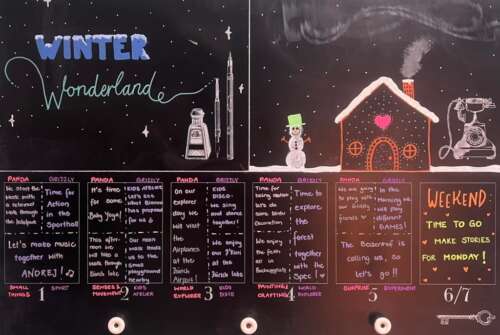 WINTER
Wonderland
PANDA GRIZZLY
We start the
week with a
walk through the
Time for
Action in
the
Sporthall
Let's make music
together with
ANDREJ!
SMALL THINGS 1 SPORT
PANDA GRIZZLY
It's time
for some
Baby Yoga!
KIDS ATELIER
Let's see
what
has prepared
for us
This after-
noon we
will has a
walk through
Our noon
leads us
to the
playground
nearby
2 KIDS ATELIER
PANDA GRIZZLY
On our
explorer
day we
will visit
the
Airplanes
at the
Zürich
Airport!
KIDS
DISCO:
We sing
and dance
together!
We enjoy
our
in the
WORLD EXPLORER 3 KIDS DISCO
PANDA GRIZZLY
Time for
being creative
let's do
some winter
Decoration
We enjoy
the
fresh air
in
Time to
explore
the
forest
together
with the
Spec!
4 WORLD EXPLORER
PANDA GRIZZLY
We are going
to play with
our Grizzly
friends
In the
Morning we
will play
different
GAMES!
The Basecamp is
calling us, so
let's go!!
SURPRISE 5 EXPERIMENT
WEEKEND
TIME TO GO
MAKE STORIES
FOR MONDAY!
6/7